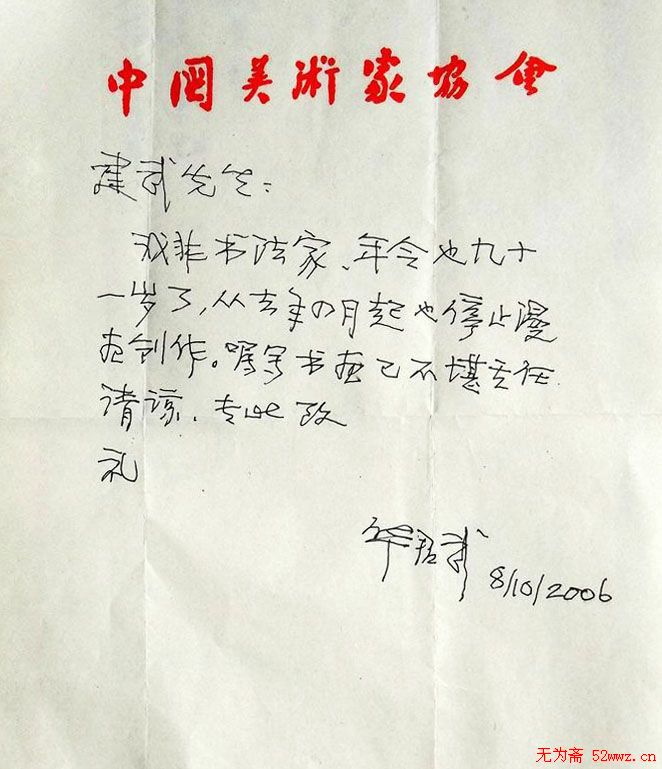 中国美術家协会
建武先生：
我非书法家、年令也九十
一岁了，从去年四月起也停止漫
画创作。嘱写书画已不堪重任
请谅、专此致
礼
华君武
8/10/2006
无为斋 52wwz.cn